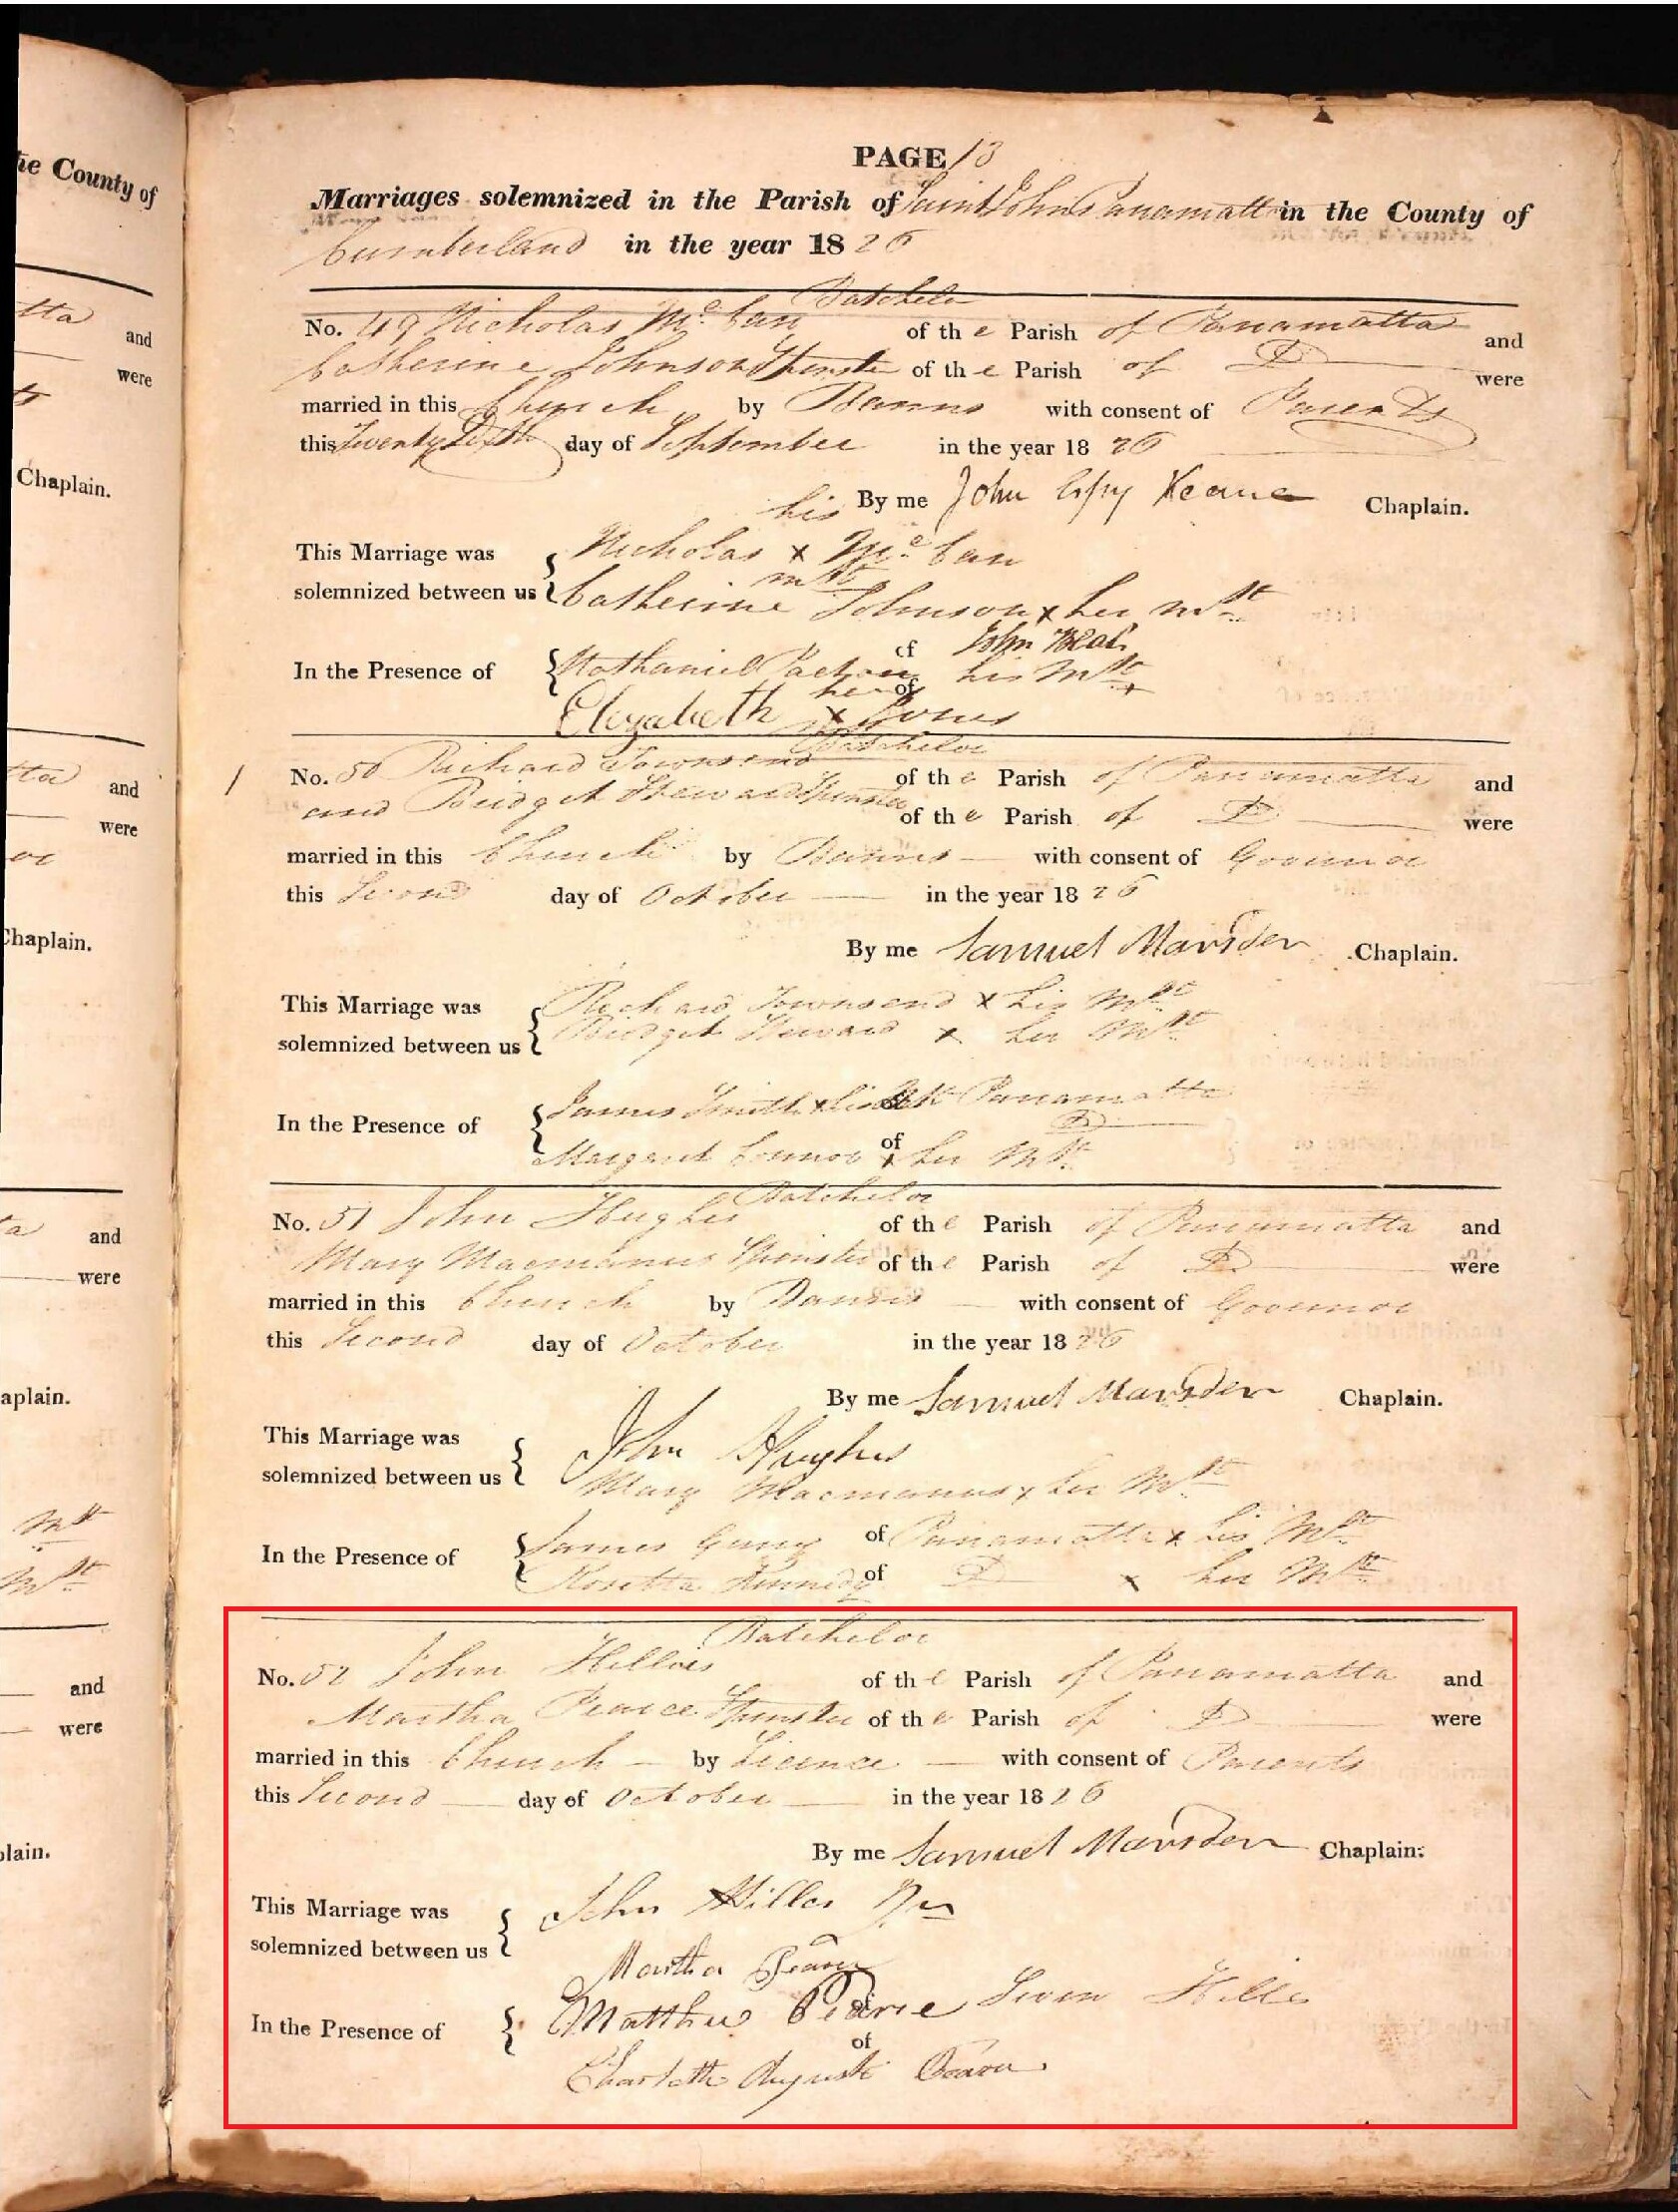 he County of
PAGE 13
Marriages solemnized in the Parish of Saint Johns Parramatta in the County of
Cumberland in the year 1826
Batchelor
No. 49 Nicholas Mc Can of the Parish of Parramatta and
Catherine Johnson Spinster of the Parish of Do were
married in this Church by Banns with consent of Parents
this Twenty day of September in the year 1826
By me John Espy Keane Chaplain.
his
This Marriage was Nicholas x Mc Can
mk
solemnized between us Catherine Johnson x her mk
of John
In the Presence of Nathaniel his Mk x
her of
Elizabeth x Jones
Batchelor
No. 50 Richard Townsend of the Parish of Parramatta and
and Bridget Steward Spinster of the Parish of Do were
married in this Church by Banns with consent of Governor
this Second day of October in the year 1826
By me Samuel Marsden Chaplain.
This Marriage was Richard Townsend x his Mk
solemnized between us Bridget Steward x her Mk
In the Presence of James Smith x his Parramatta
Do
Margaret Connor of x her Mk
Batchelor
No. 51 John Hughes of the Parish of Parramatta and
Mary Macmanus Spinster of the Parish of Do were
married in this Church by Banns with consent of Governor
this Second day of October in the year 1826
By me Samuel Marsden Chaplain.
This Marriage was John Hughes
solemnized between us Mary Macmanus x her Mk
In the Presence of James of Parramatta x his Mk
Rosetta Kennedy of Do x her Mk
Batchelor
No. 52 John Hillas of the Parish of Parramatta and
Martha Pearce Spinster of the Parish of Do were
married in this Church by Licence with consent of Parents
this Second day of October in the year 1826
By me Samuel Marsden Chaplain.
This Marriage was John Hillas Jnr
solemnized between us Martha Pearce
In the Presence of Matthew Pearce of Hillas
of
Charlotte Augusta
tta and
were
Chaplain.
tta and
were
or
Chaplain.
ta and
were
aplain.
Mk
Mk
and
were
plain.